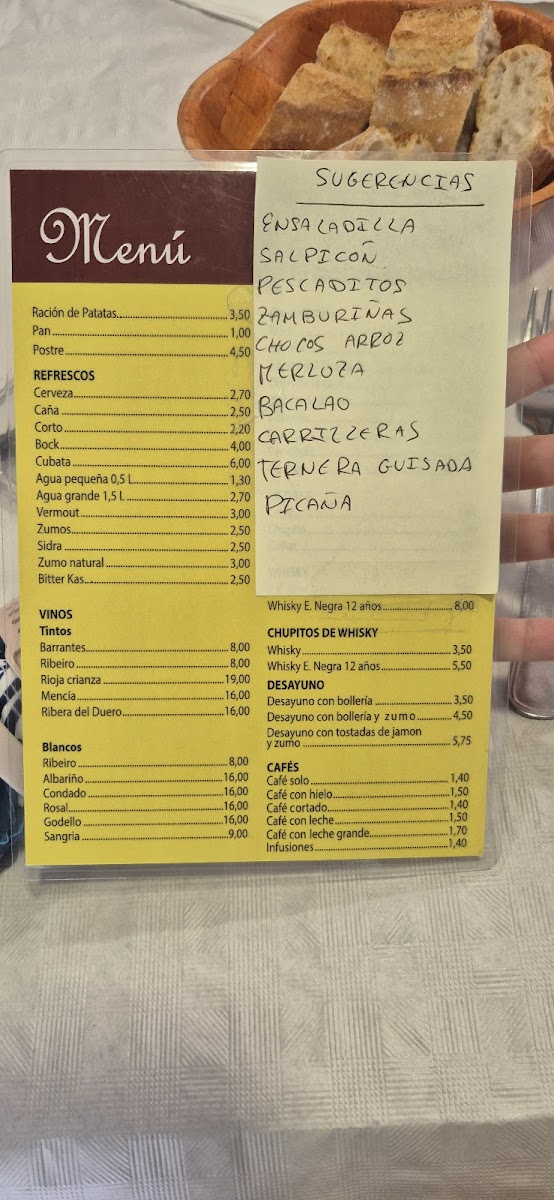 Menú
Ración de Patatas 3,50
Pan 1,00
Postre 4,50
REFRESCOS
Cerveza 2,70
Caña 2,50
Corto 2,20
Bock 4,00
Cubata 6,00
Agua pequeña 0,5 L 1,30
Agua grande 1,5 L 2,70
Vermout 3,00
Zumos 2,50
Sidra 2,50
Zumo natural 3,00
Bitter Kas 2,50
VINOS
Tintos
Barrantes 8,00
Ribeiro 8,00
Rioja crianza 19,00
Mencía 16,00
Ribera del Duero 16,00
Blancos
Ribeiro 8,00
Albariño 16,00
Condado 16,00
Rosal 16,00
Godello 16,00
Sangria 9,00
SUGERENCIAS
ENSALADILLA
SALPICOÑ
PESCADITOS
ZAMBURIÑAS
CHOCOS ARROZ
MERLUZA
BACALAO
CARRILLERAS
TERNERA GUISADA
PICAÑA
WHISKY
Whisky E. Negra 12 años 8,00
CHUPITOS DE WHISKY
Whisky 3,50
Whisky E. Negra 12 años 5,50
DESAYUNO
Desayuno con bollería 3,50
Desayuno con bollería y zumo 4,50
Desayuno con tostadas de jamon
y zumo 5,75
CAFÉS
Café solo 1,40
Café con hielo 1,50
Café cortado 1,40
Café con leche 1,50
Café con leche grande 1,70
Infusiones 1,40